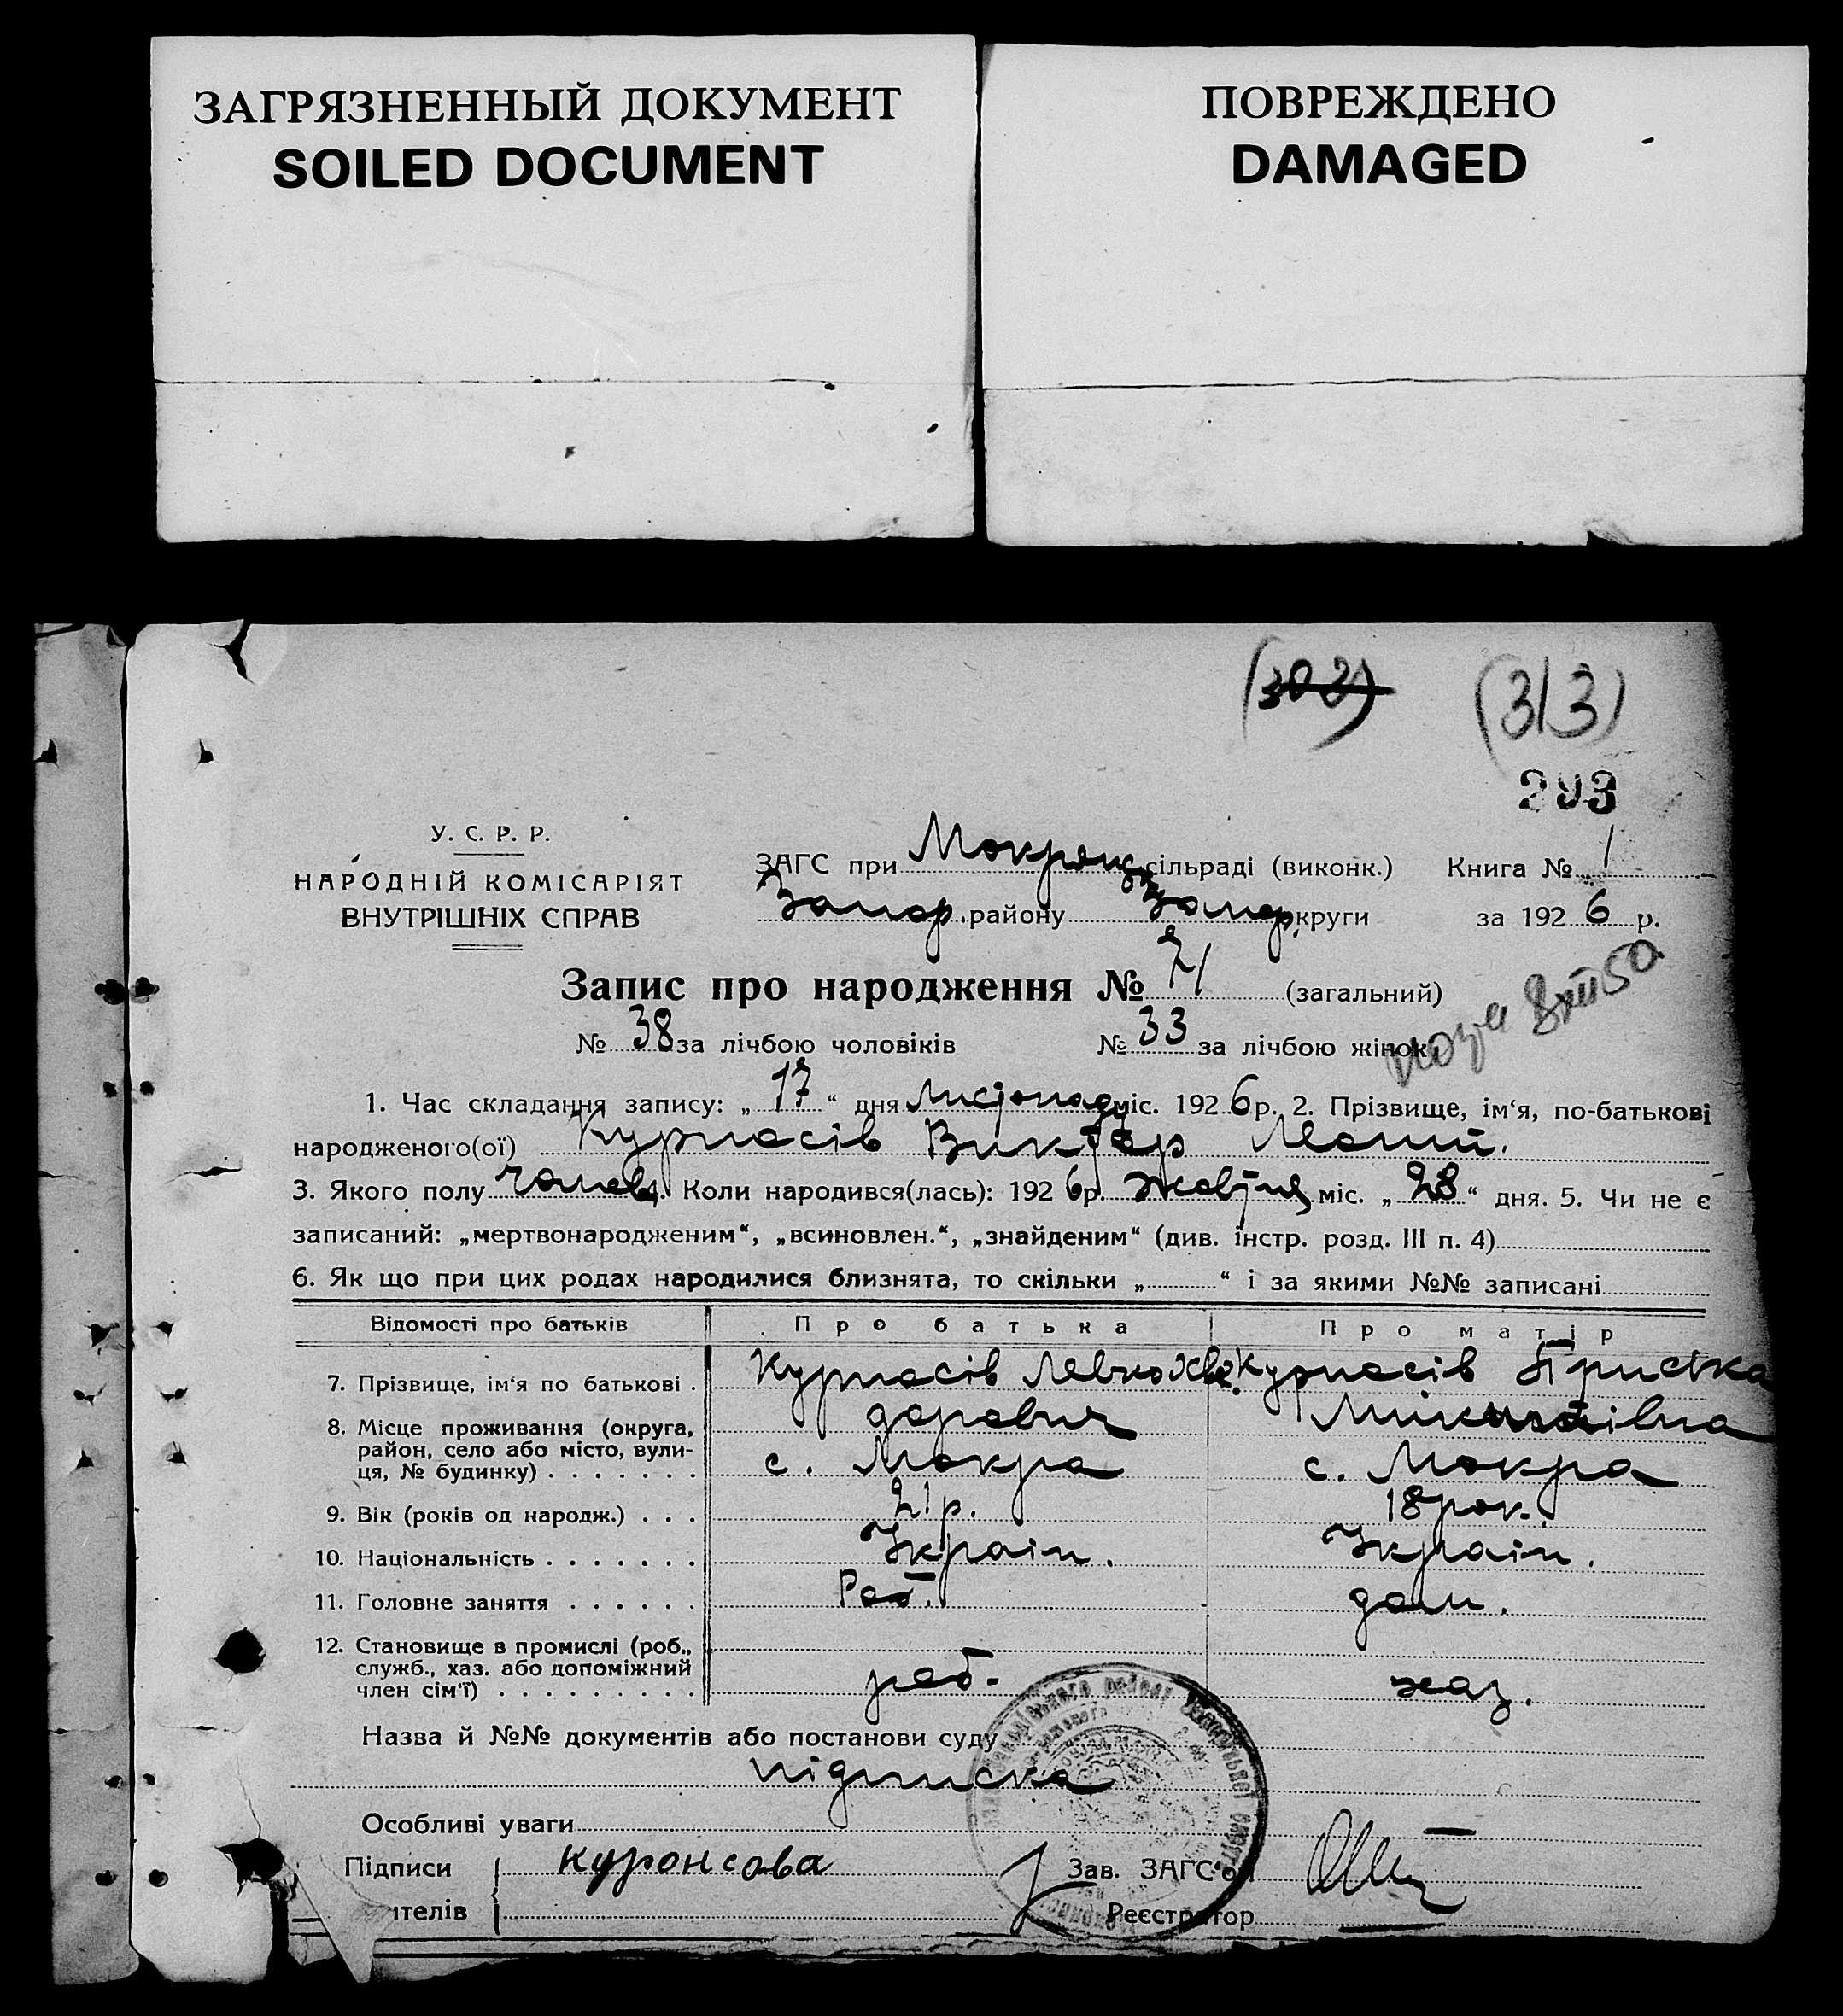 ЗАГРЯЗНЕННЫЙ ДОКУМЕНТ
SOILED DOCUMENT
ПОВРЕЖДЕНО
DAMAGED
(302) (313)
293
У. С. Р. Р.
НАРОДНІЙ КОМІСАРІЯТ
ВНУТРІШНІХ СПРАВ
ЗАГС при Мокрянц. сільраді (виконк.) Книга № 1
Запор. району Запор. округи за 1926 р.
Запис про народження № 71 (загальний)
№ 38 за лічбою чоловіків № 33 за лічбою жінок
1. Час складання запису: „17“ дня Листопаду міс. 1926 р. 2. Прізвище, ім‘я, по-батькові
народженого(ої) Курпасів Виктор
3. Якого полу чолов. 4. Коли народився(лась): 1926 р. Жовтня міс. „28“ дня. 5. Чи не є
записаний: „мертвонародженим“, „всиновлен.“, „знайденим“ (див. інстр. розд. III п. 4)
6. Як що при цих родах народилися близнята, то скільки „ “ і за якими №№ записані
Відомості про батьків Про батька Про матір
7. Прізвище, ім‘я по батькові . Курпасів Левко Хве- Курпасів Пристка
доравич Микитаівна
8. Місце проживання (округа, район, село або місто, вулиця, № будинку) . . . . . . . с. Мокра с. Мокра
9. Вік (років од народж.) . . . 21 р. 18 рок.
10. Національність . . . . . . . Україн. Україн.
11. Головне заняття . . . . . . Роб. дом.
12. Становище в промислі (роб., служб., хаз. або допоміжний член сім‘ї) . . . . . . . . . роб. хаз.
Назва й №№ документів або постанови суду
підписка
Особливі уваги
Підписи куронсова Зав. ЗАГС‘ом
ителів Реєстратор